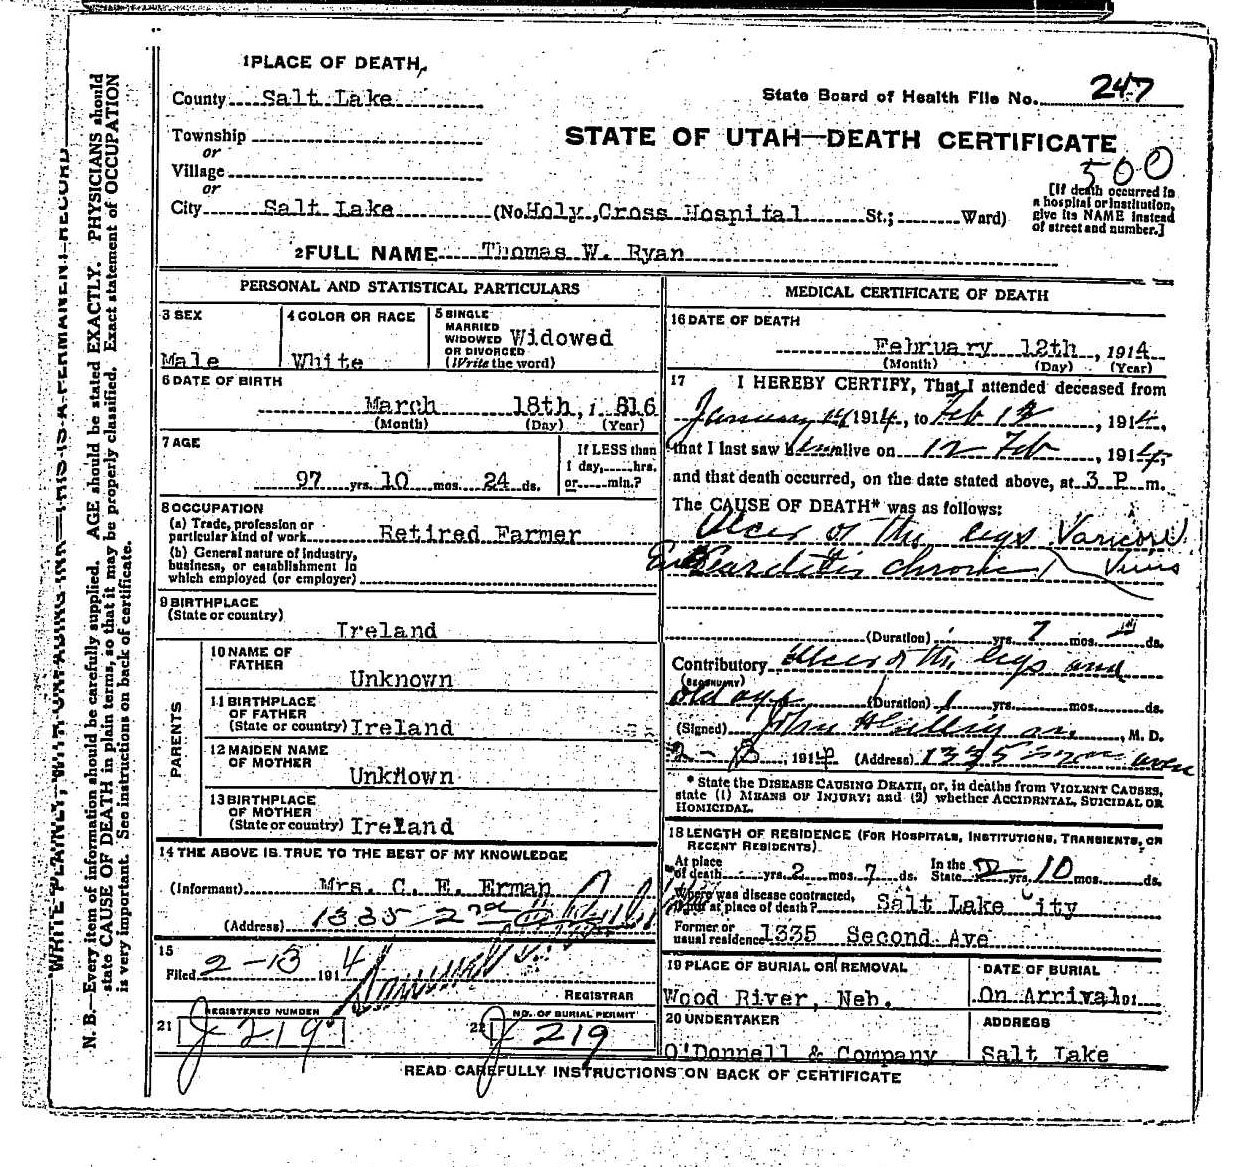 1 PLACE OF DEATH,
County Salt Lake
State Board of Health File No. 247
Township
or
STATE OF UTAH—DEATH CERTIFICATE
Village
or
500
City Salt Lake (No. Holy Cross Hospital St.; Ward)
[If death occurred in
a hospital or institution,
give its NAME instead
of street and number.]
2 FULL NAME Thomas W. Ryan
PERSONAL AND STATISTICAL PARTICULARS
3 SEX
Male
4 COLOR OR RACE
White
5 SINGLE
MARRIED
WIDOWED
OR DIVORCED
(Write the word)
Widowed
6 DATE OF BIRTH
March 18th, 1816
(Month) (Day) (Year)
7 AGE
97 yrs. 10 mos. 24 ds.
If LESS than
1 day, hrs.
or min.?
8 OCCUPATION
(a) Trade, profession or
particular kind of work Retired Farmer
(b) General nature of industry,
business, or establishment in
which employed (or employer)
9 BIRTHPLACE
(State or country)
Ireland
PARENTS
10 NAME OF
FATHER
Unknown
11 BIRTHPLACE
OF FATHER
(State or country) Ireland
12 MAIDEN NAME
OF MOTHER
Unknown
13 BIRTHPLACE
OF MOTHER
(State or country) Ireland
14 THE ABOVE IS TRUE TO THE BEST OF MY KNOWLEDGE
(Informant) Mrs. C. E. Erman
(Address) 1335 2nd
15
Filed 2-13 1914
REGISTRAR
REGISTERED NUMBER
21 219
NO. OF BURIAL PERMIT
22 219
MEDICAL CERTIFICATE OF DEATH
16 DATE OF DEATH
February 12th, 1914
(Month) (Day) (Year)
17 I HEREBY CERTIFY, That I attended deceased from
January 14 1914, to Feb 12, 1914,
that I last saw him alive on 12 Feb, 1914,
and that death occurred, on the date stated above, at 3 P. m.
The CAUSE OF DEATH* was as follows:
Ulcer of the legs Varicose
Veins
chronic
(Duration) yrs. 7 mos. ds.
Contributory Ulcer of the legs and
(SECONDARY)
old age (Duration) 1 yrs. mos. ds.
(Signed) John, M. D.
2-13, 1914 (Address) 1335
* State the DISEASE CAUSING DEATH, or, in deaths from VIOLENT CAUSES,
state (1) MEANS OF INJURY; and (2) whether ACCIDENTAL, SUICIDAL OR
HOMICIDAL.
18 LENGTH OF RESIDENCE (FOR HOSPITALS, INSTITUTIONS, TRANSIENTS, OR
RECENT RESIDENTS)
At place
of death yrs. 2 mos. 7 ds.
In the
State yrs. 10 mos. ds.
Where was disease contracted,
if not at place of death? Salt Lake City
Former or
usual residence 1335 Second Ave
19 PLACE OF BURIAL OR REMOVAL
Wood River, Neb.
DATE OF BURIAL
On Arrival 191
20 UNDERTAKER
O'Donnell & Company
ADDRESS
Salt Lake
READ CAREFULLY INSTRUCTIONS ON BACK OF CERTIFICATE
WRITE PLAINLY, WITH UNFADING INK—THIS IS A PERMANENT RECORD
N. B.—Every item of information should be carefully supplied. AGE should be stated EXACTLY. PHYSICIANS should
state CAUSE OF DEATH in plain terms, so that it may be properly classified. Exact statement of OCCUPATION
is very important. See instructions on back of certificate.